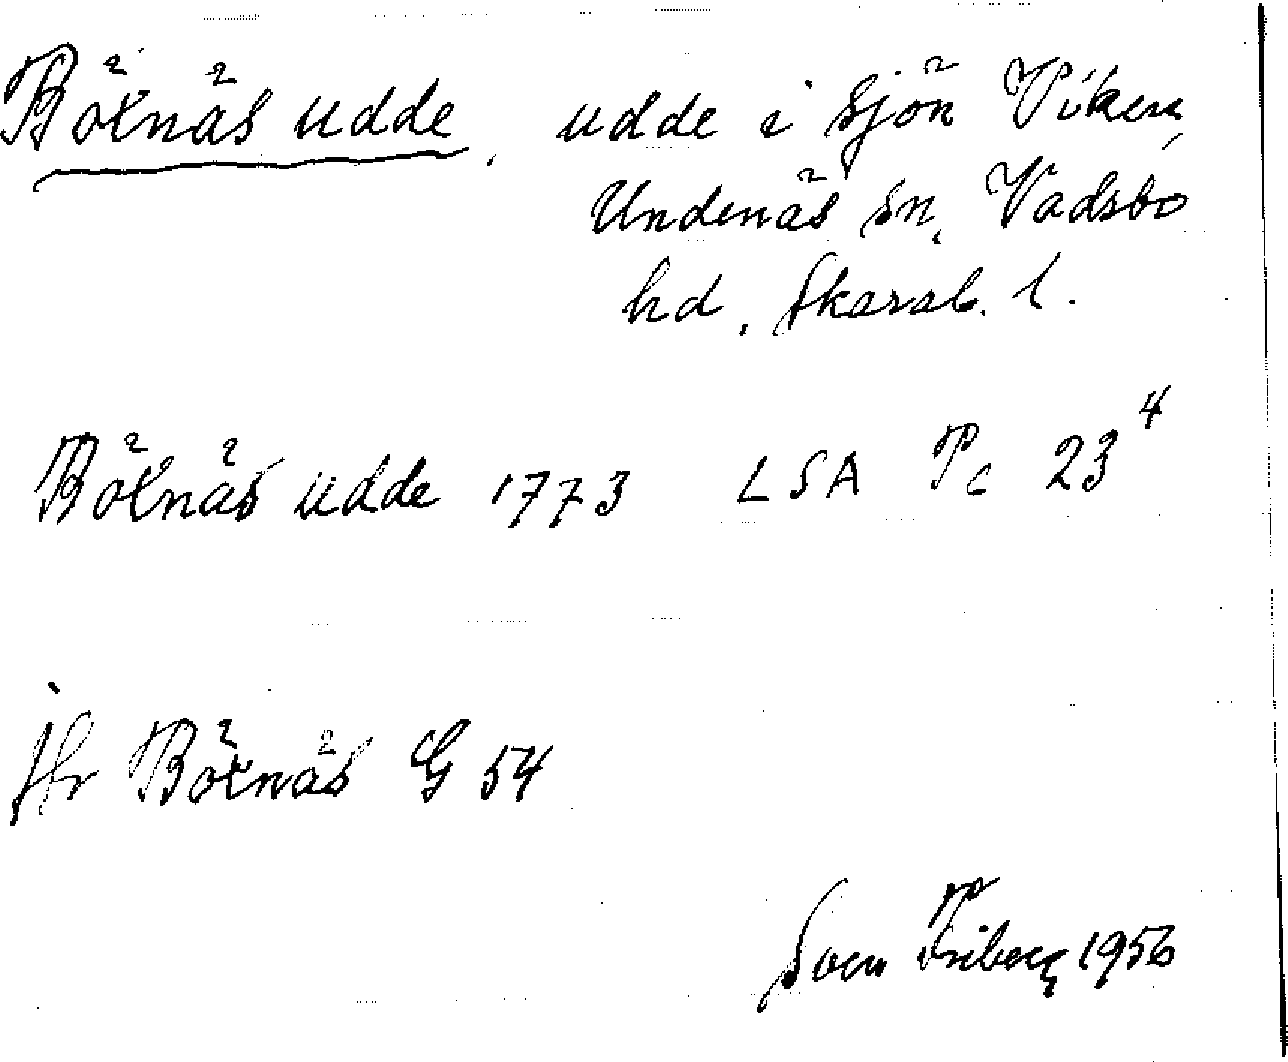 Bötnäs udde, udde i sjön Viken,
Undenäs sn, Vadsbo
hd, Skarab. l.
Bötnäs udde 1773 LSA Pc 23⁴
jfr Bötnäs G 54
Sven Friberg 1956